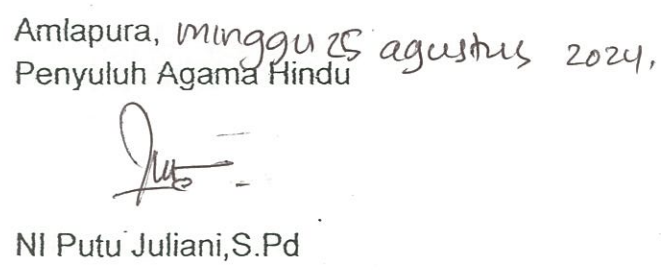 Amlapura, minggu 25 agustus 2024.
Penyuluh Agama Hindu
NI Putu Juliani,S.Pd